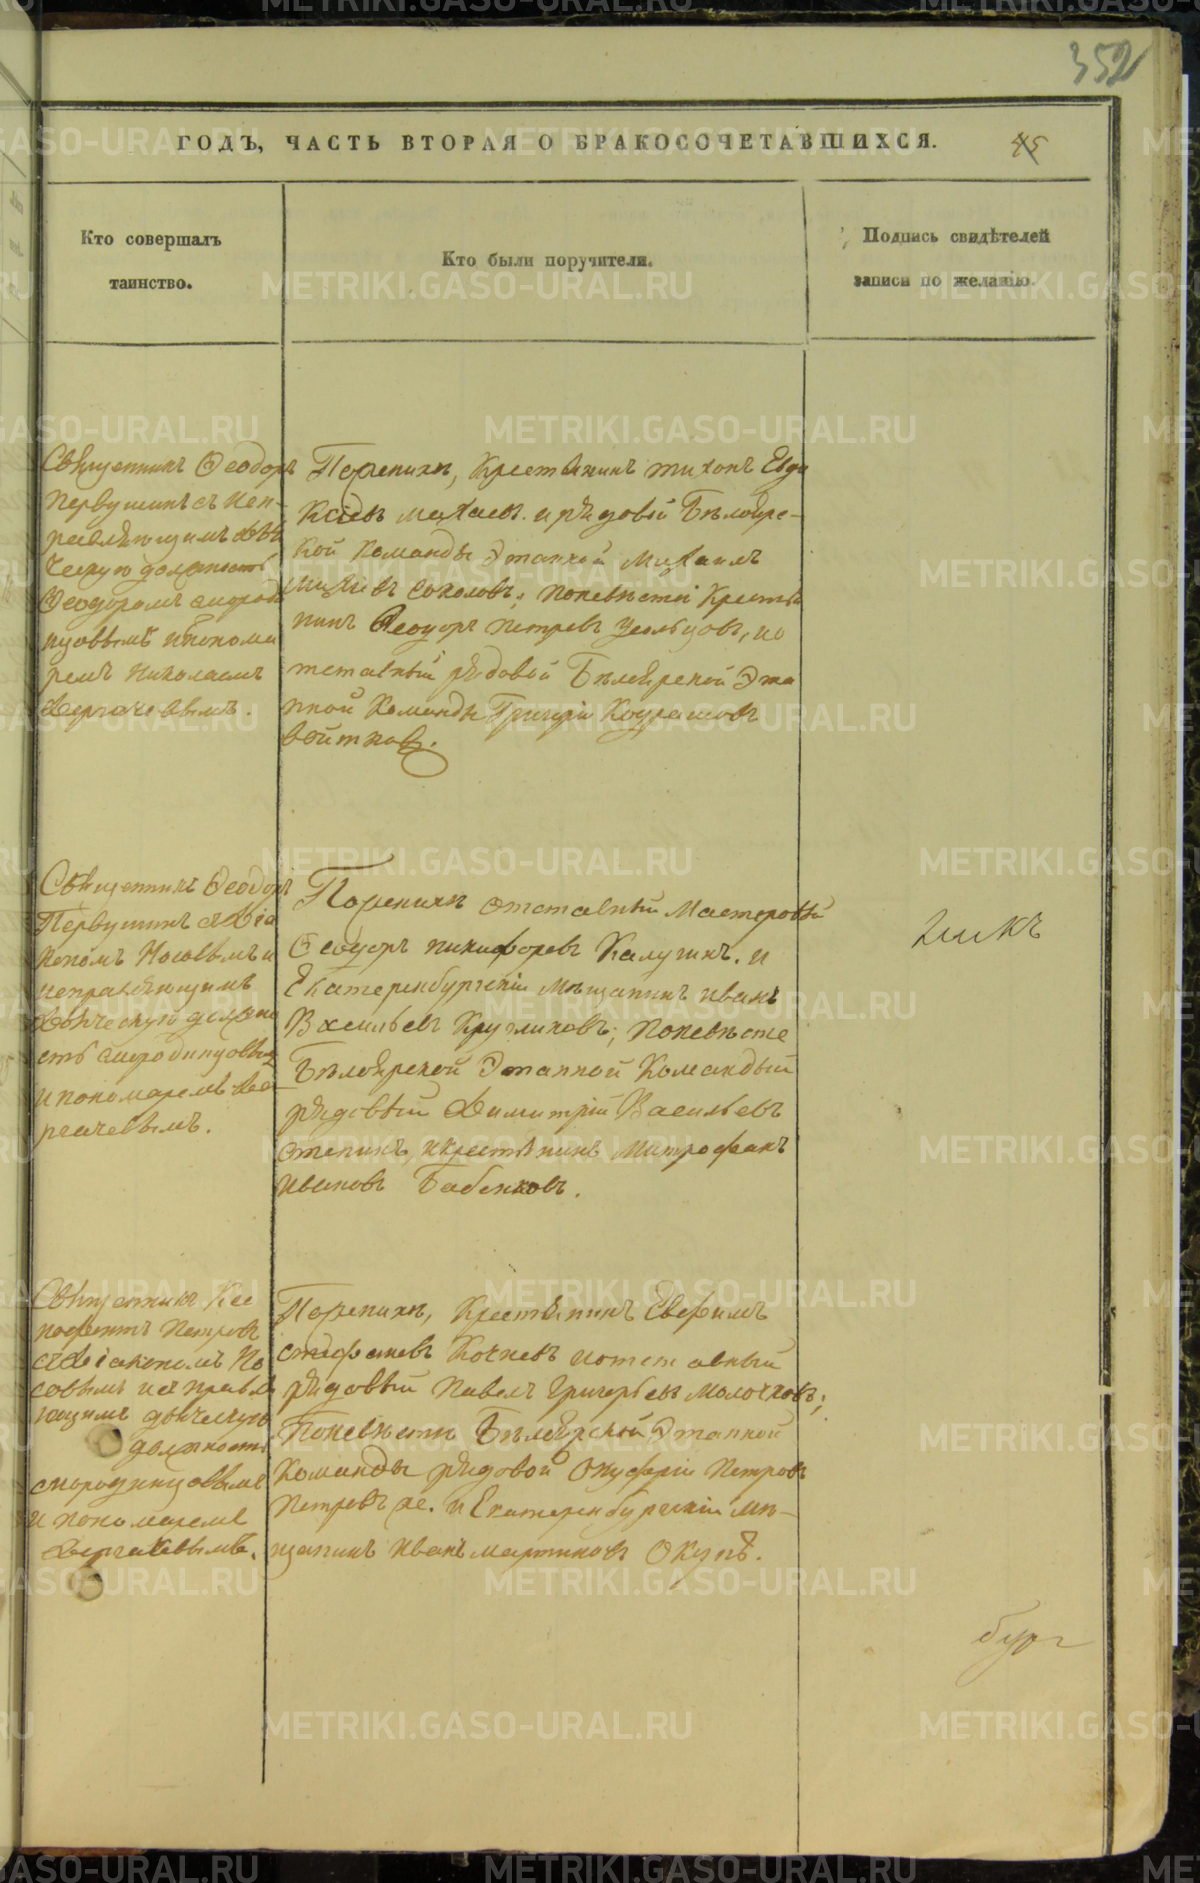 352
ГОДЪ, ЧАСТЬ ВТОРАЯ О БРАКОСОЧЕТАВШИХСЯ.
45
Кто совершалъ
таинство.
Кто были поручители.
Подпись свидѣтелей
записи по желанію.
Священникъ Ѳеодоръ
Первушинъ съ исп-
равляющимъ дья
ческую должность
Ѳеодоромъ Смороди
нцовымъ и понома
ремъ Николаемъ
Дерягачевымъ.
По женихѣ, Крестьянинъ Тихонъ Евдо
кимовъ и рядовой Бѣлоярс-
кой команды Этапной Михаилъ
Соколовъ; по невѣстѣ Кресть
нинъ Ѳеодоръ Петровъ Усольцовъ, и о
тставный рядовой Бѣлоярской Эта
пной Команды Григорій Кондрашовъ
Войтковъ.
Священникъ Ѳеодоръ
Первушинъ съ Діа
кономъ Носовымъ и
исправляющимъ
дьяческую должно
сть Смородинцовым
и пономаремъ
По женихѣ отставный Мастеровый
Ѳеодоръ Никифоровъ Калугинъ. и
Екатеринбургскій Мѣщанинъ Иванъ
Васильевъ Кругликовъ; по невѣсте
Бѣлоярской Этапной Командый
рядовый Димитрій Васильевъ
Степинъ, и крестьянинъ Митрофанъ
Ивановъ Бабенковъ.
Священникъ Ксе
нофонтъ Петровъ
съ Діакономъ Но
совымъ исправля
ющимъ дьяческую
должность
Смородинцовымъ
и пономаремъ
По женихѣ, Крестьянинъ Евфимъ
Стефановъ Кочневъ и отставный
рядовый Павелъ Григорьевъ Молочковъ;
По невѣсты Бѣлоярской Этапной
Команды рядовой Онуфрій Петровъ
Петровъ же. и Екатеринбургскій мѣ-
щанинъ Иванъ Мартиновъ Окуневъ.